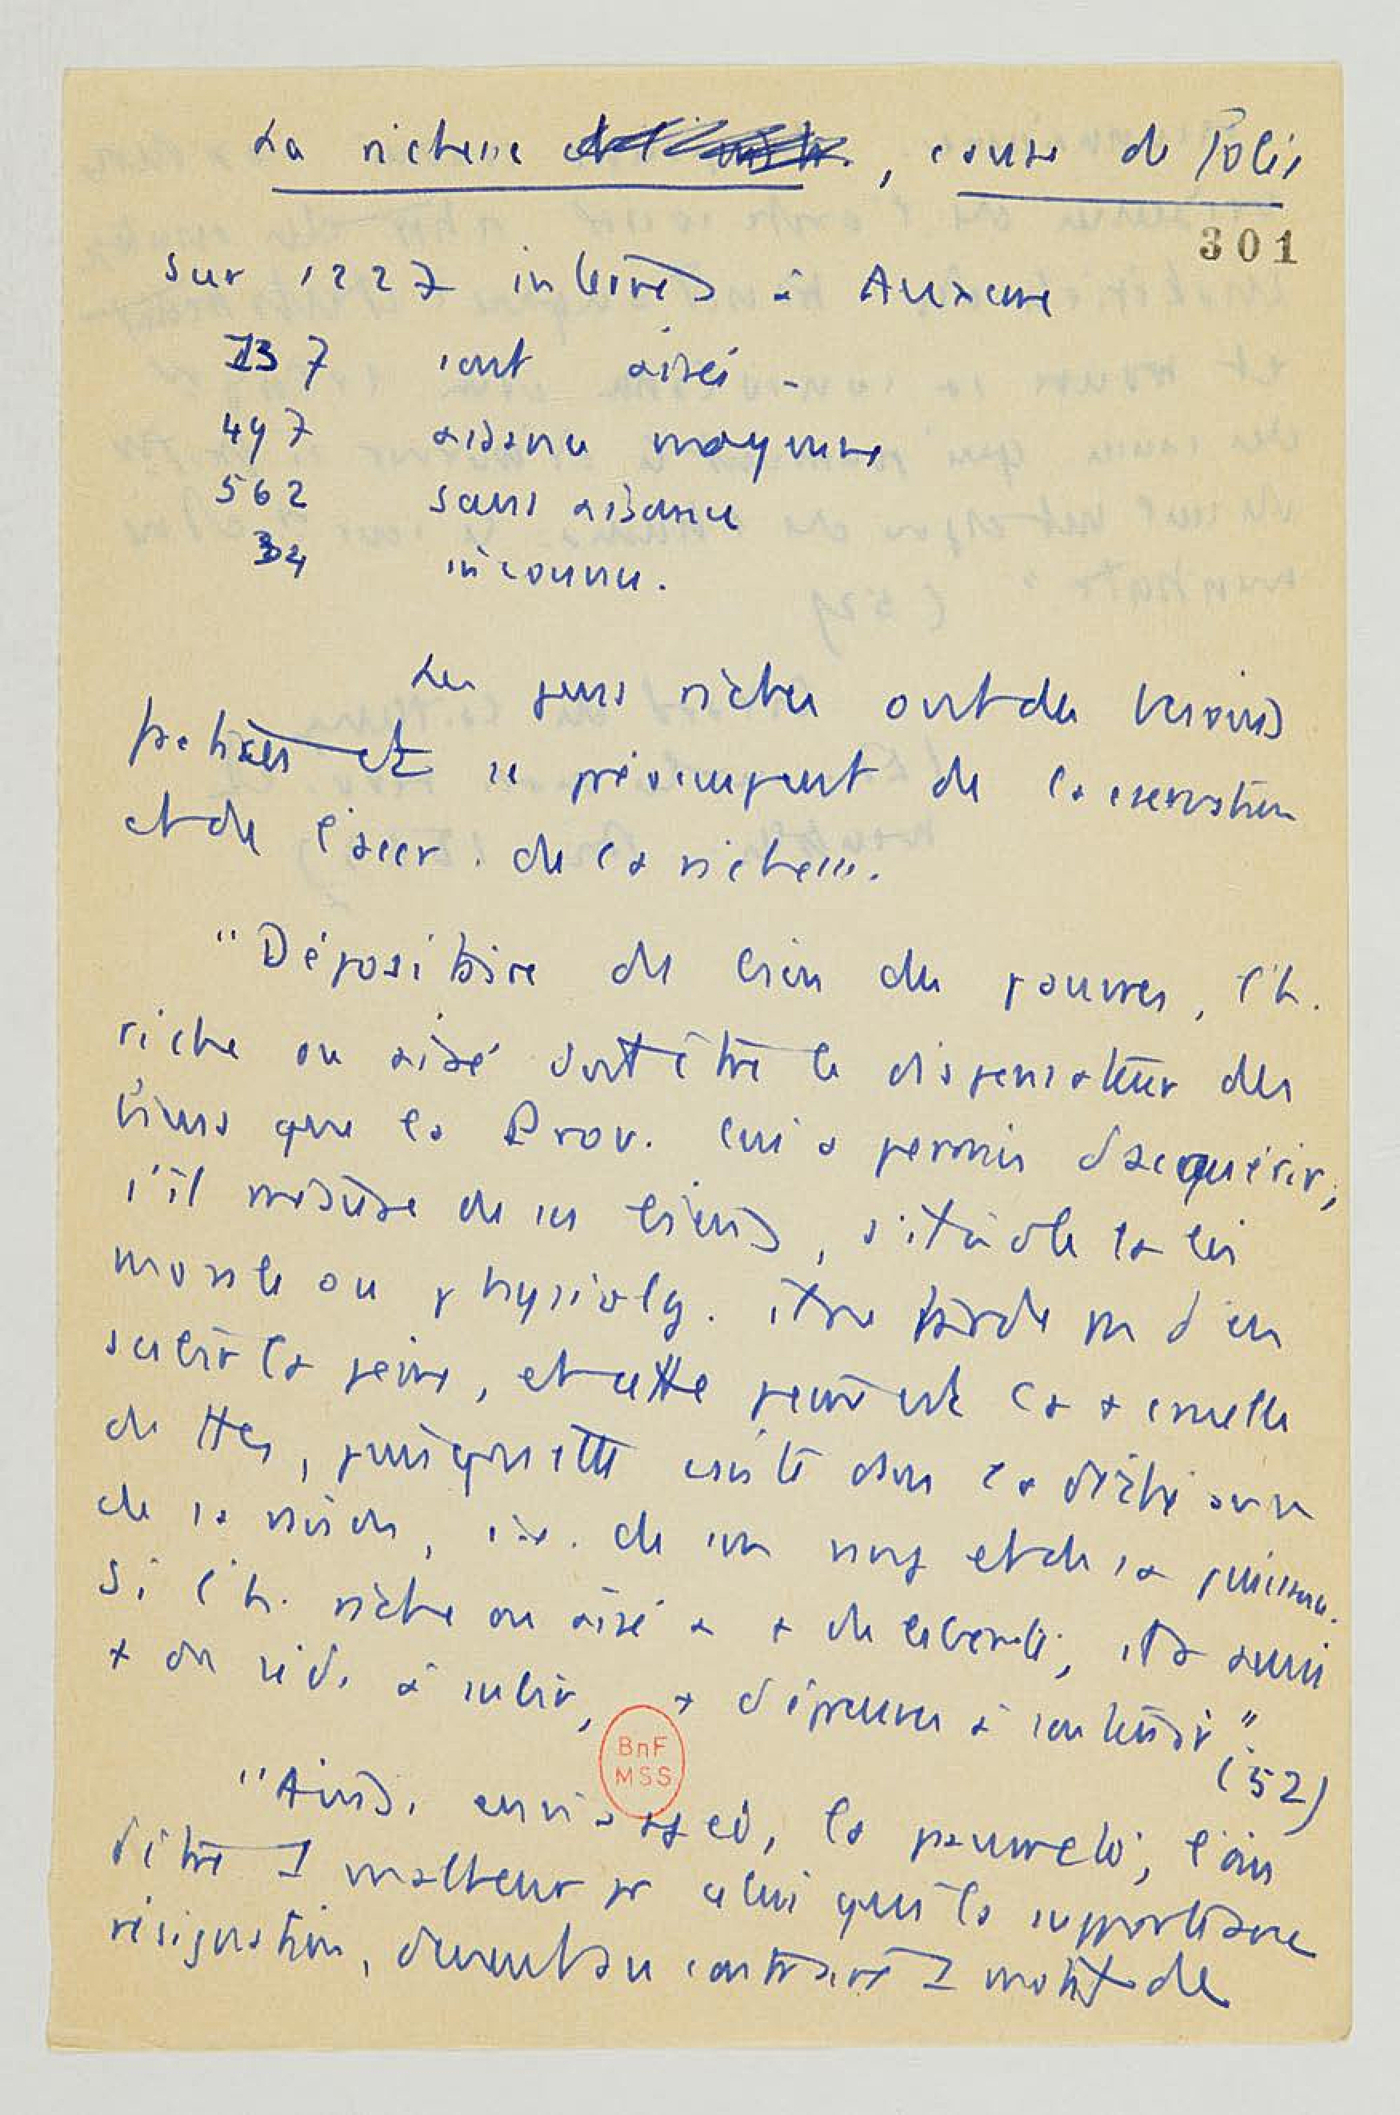 La richesse , cause de folie
301
Sur 1227 internés à Auxerre
137 sont aisés.
497 aisance moyenne
562 sans aisance
34 inconnu.
Les gens riches ont des besoins
factices et se préoccupent de la conservation
et de l'accr. de la richesse.
"Dépositaire du bien des pauvres, l'h.
riche ou aisé doit être le dispensateur des
biens que la Prov. lui a permis d'acquérir;
s'il mésuse de ses biens, s'il viole la loi
morale ou physiolog. il ne tarde pas d'en
subir la peine, et cette peine est la + cruelle
de ttes, puisqu'elle existe dans la
de sa raison, càd. de son et de sa puissance.
Si l'h. riche ou aisé a + de liberté, il a aussi
+ de à subir, + d'épreuves à soutenir"
(52)
BnF
MSS
"Ainsi envisagée, la pauvreté, loin
d'être 1 malheur pr celui qui la supporte avec
résignation, devient au contraire 1 motif de